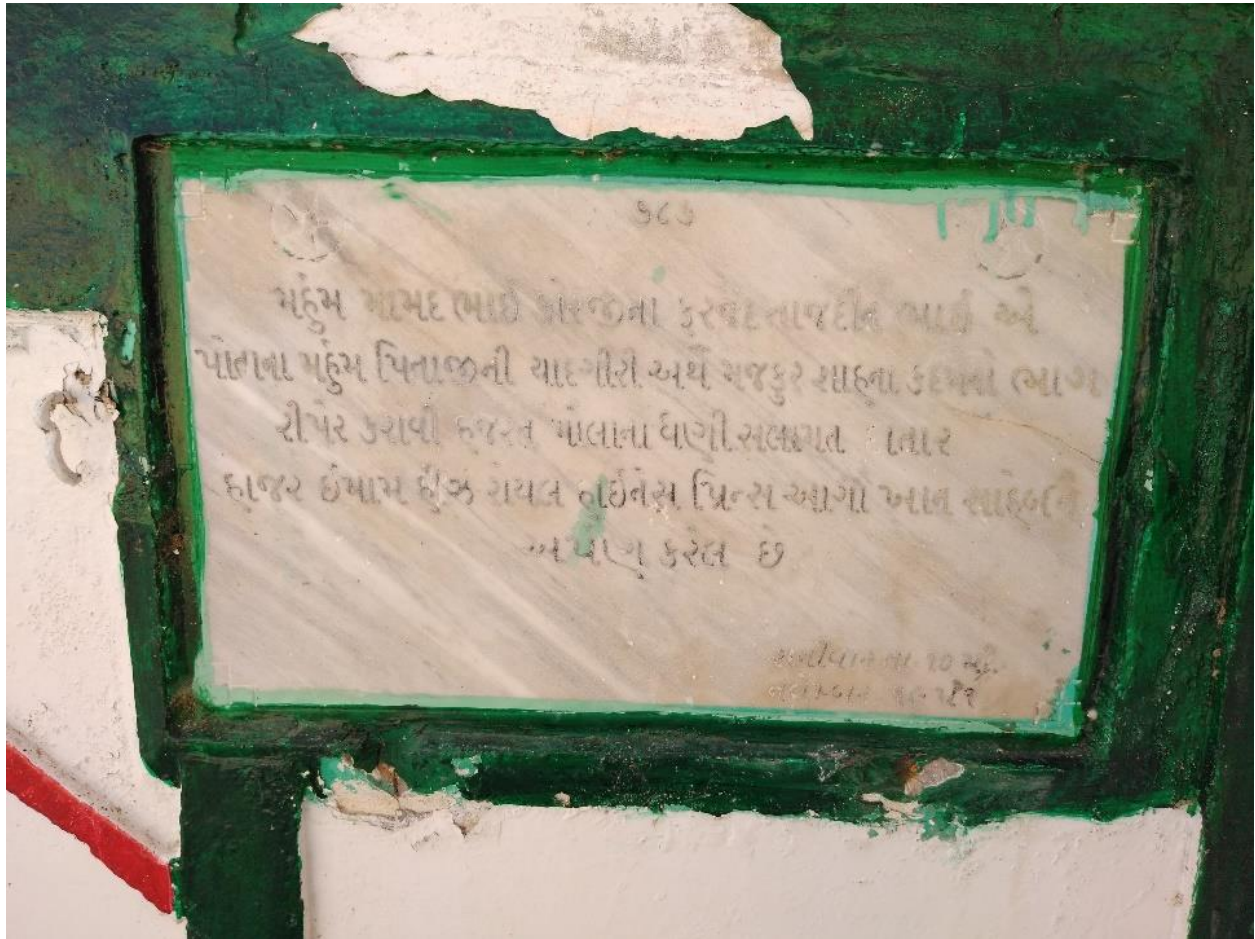 ૭૮૬
મર્હુમ મામદ ભાઇ કોરજીના ફરજંદ તાજદીન ભાઇ એ
પોતાના મર્હુમ પિતાજીની યાદગીરી અર્થે મજકુર શાહના કદમનો ભાગ
રીપેર કરાવી હજરત મોલાના ધણી સલામત દાતાર
હાજર ઇમામ હીઝ રોયલ હાઇનેસ પ્રિન્સ આગા ખાન સાહેબને
અર્પણ કરેલ છે
તા. ૧૦ મી